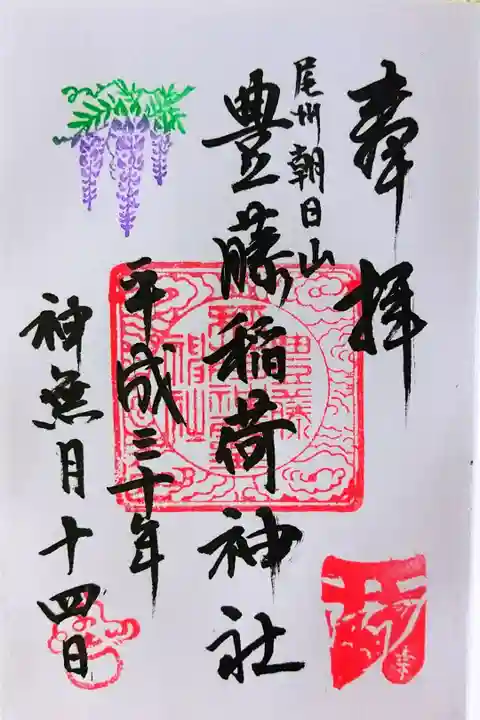 奉拝
尾州朝日山
豊藤稲荷神社
平成三十年
神無月十四日